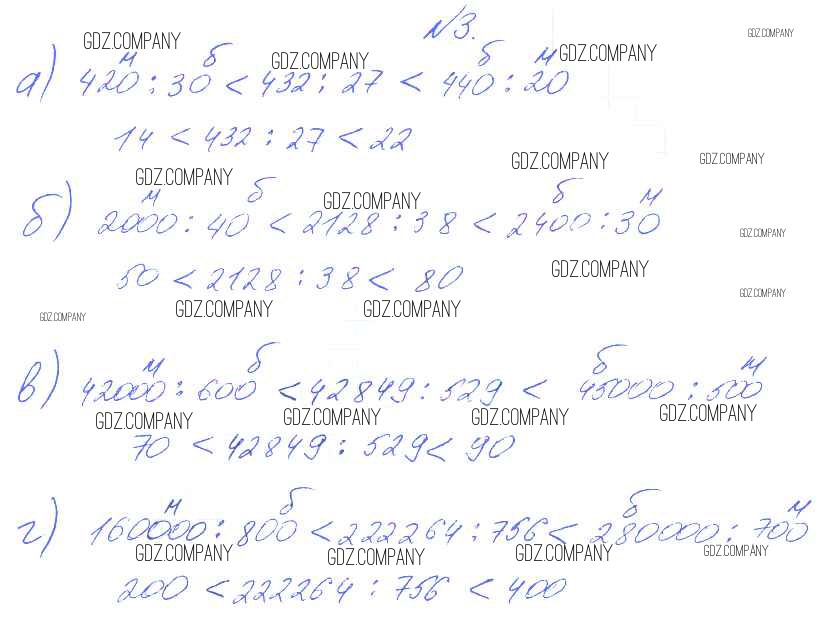 N3.
GDZ.COMPANY GDZ.COMPANY GDZ.COMPANY GDZ.COMPANY
м б б м
а) 420 : 30 < 432 : 27 < 440 : 20
14 < 432 : 27 < 22
GDZ.COMPANY GDZ.COMPANY GDZ.COMPANY GDZ.COMPANY
м б б м
б) 2000 : 40 < 2128 : 38 < 2400 : 30
GDZ.COMPANY
50 < 2128 : 38 < 80
GDZ.COMPANY GDZ.COMPANY
GDZ.COMPANY GDZ.COMPANY GDZ.COMPANY
м б б м
в) 42000 : 600 < 42849 : 529 < 45000 : 500
GDZ.COMPANY GDZ.COMPANY GDZ.COMPANY GDZ.COMPANY
70 < 42849 : 529 < 90
м б б м
г) 160000 : 800 < 222264 : 756 < 280000 : 700
GDZ.COMPANY GDZ.COMPANY GDZ.COMPANY GDZ.COMPANY
200 < 222264 : 756 < 400